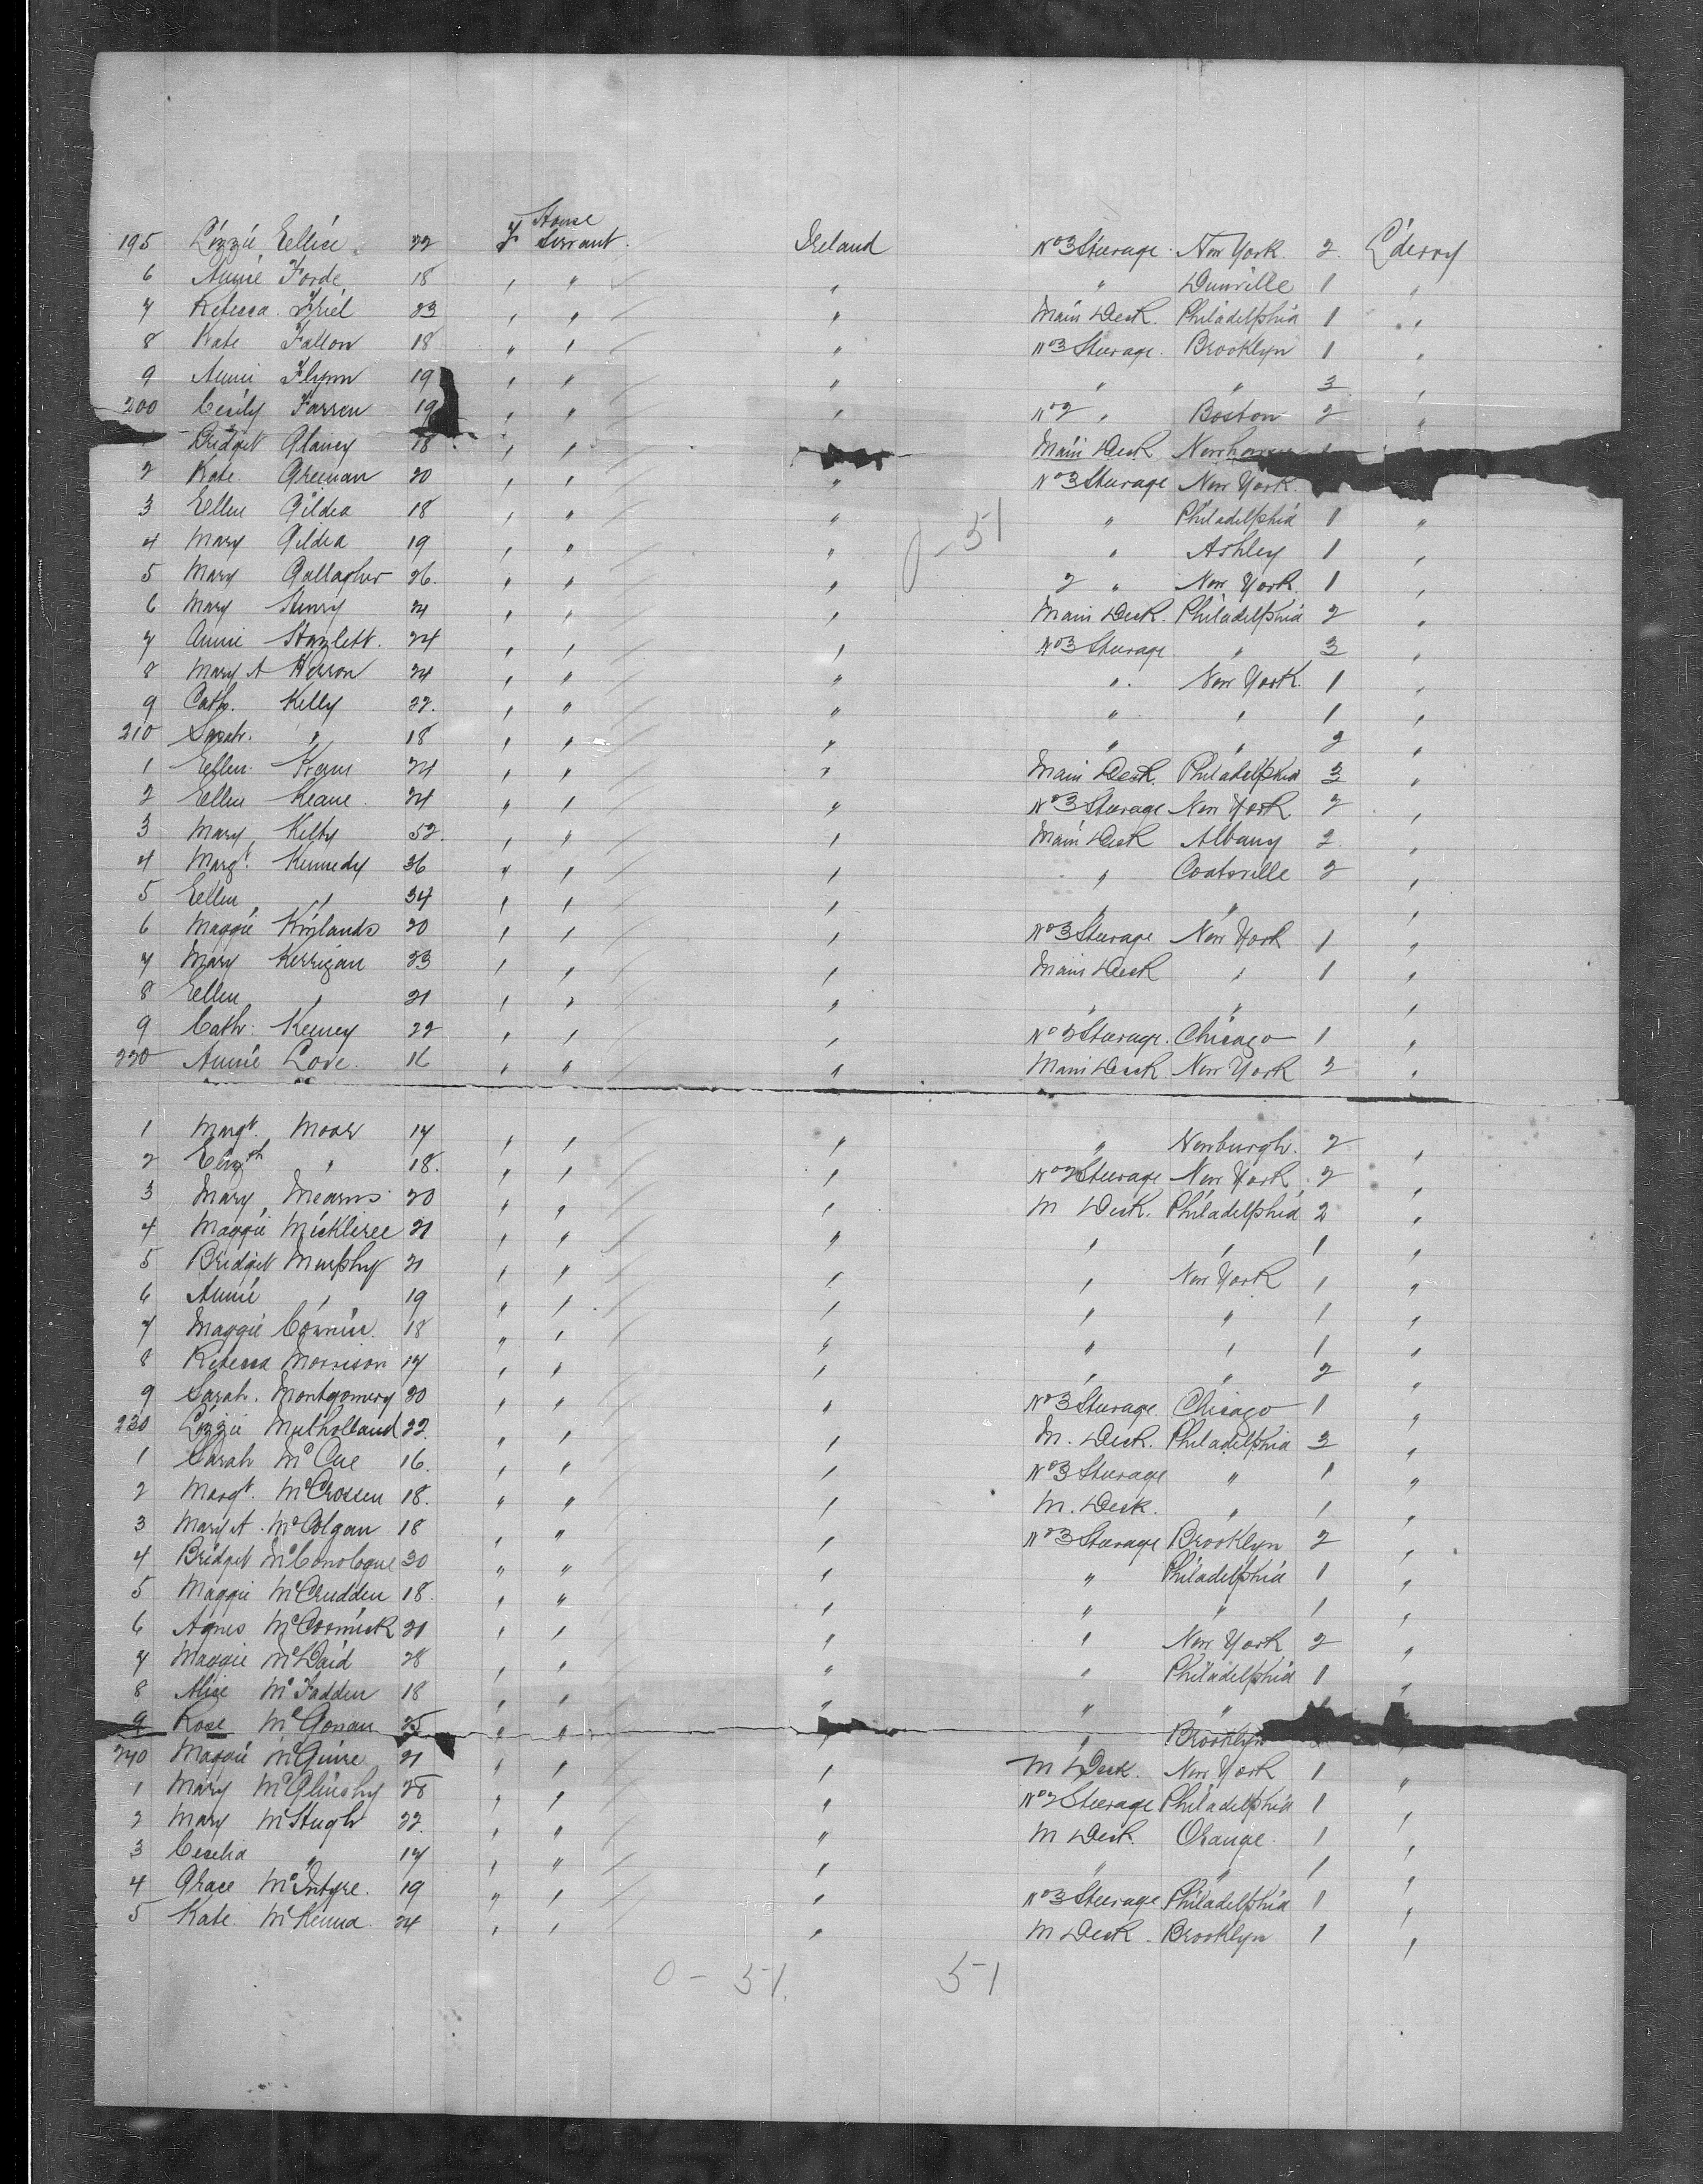 195 Lizzie Ellice 22 F House Servant Ireland No 3 Steerage New York 2 L'derry
6 Annie Forde 18 " " " " Dunville 1 "
7 Rebecca Friel 23 " " " Main Deck Philadelphia 1 "
8 Kate Fallon 18 " " " No 3 Steerage Brooklyn 1 "
9 Annie Flynn 19 " " " " " 3 "
200 Cecily Farren 19 " " " No 2 " Boston 2 "
Bridget Glancy 18 " " Main Deck
2 Kate Greenan 20 " " " No 3 Steerage New York
3 Ellen Gildea 18 " " " " Philadelphia 1 "
0-51
4 Mary Gildea 19 " " " " Ashley 1 "
5 Mary Gallagher 26 " " " 2 " New York 1 "
6 Mary Henry 24 " " " Main Deck Philadelphia 2 "
7 Annie Hazlett 24 " " " No 3 Steerage " 3 "
8 Mary A Herron 24 " " " " New York 1 "
9 Cath. Kelly 22 " " " " " 1 "
210 Sarah " 18 " " " " " 2 "
1 Ellen 24 " " " Main Deck Philadelphia 3 "
2 Ellen Keane 24 " " " No 3 Steerage New York 2 "
3 Mary Kelly 52 " " " Main Deck Albany 2 "
4 Margt. Kennedy 36 " " " " Coatsville 2 "
5 Ellen " 34 " " " " " "
6 Maggie Kinlands 20 " " " No 3 Steerage New York 1 "
7 Mary Kerrigan 23 " " " Main Deck " 1 "
8 Ellen " 21 " " " " " "
9 Cath. Kenney 22 " " " No 3 Steerage Chicago 1 "
220 Annie Love 16 " " " Main Deck New York 2 "
1 Margt. Moore 17 " " " " Newburgh 2 "
2 Elizth " 18 " " " No 2 Steerage New York 2 "
3 Mary Mearns 20 " " " M Deck Philadelphia 2 "
4 Maggie Mickleree 21 " " " " " 1 "
5 Bridget Murphy 21 " " " " New York 1 "
6 Annie " 19 " " " " " 1 "
7 Maggie 18 " " " " " 1 "
8 Rebecca Morrison 17 " " " " " 2 "
9 Sarah Montgomery 20 " " " No 3 Steerage Chicago 1 "
230 Lizzie Mulholland 22 " " " M. Deck Philadelphia 3 "
1 Sarah McCue 16 " " " No 3 Steerage " 1 "
2 Margt. McCrossen 18 " " " M. Deck " 1 "
3 Mary A McColgan 18 " " " No 3 Steerage Brooklyn 2 "
4 Bridget McConologue 30 " " " " Philadelphia 1 "
5 Maggie McCrudden 18 " " " " " 1 "
6 Agnes McCormick 21 " " " " New York 2 "
7 Maggie McDaid 28 " " " " Philadelphia 1 "
8 Alice McFadden 18 " " " " "
9 Rose McGonan 25 " " " Brooklyn "
240 Maggie McGuire 21 " " " M Deck New York 1 "
1 Mary McGlinchy 28 " " " No 2 Steerage Philadelphia 1 "
2 Mary McHugh 22 " " " M Deck Orange 1 "
3 Cecelia " 17 " " " " " 1 "
4 Grace McIntyre 19 " " " No 3 Steerage Philadelphia 1 "
5 Kate McKenna 24 " " " M Deck Brooklyn 1 "
0-51. 51